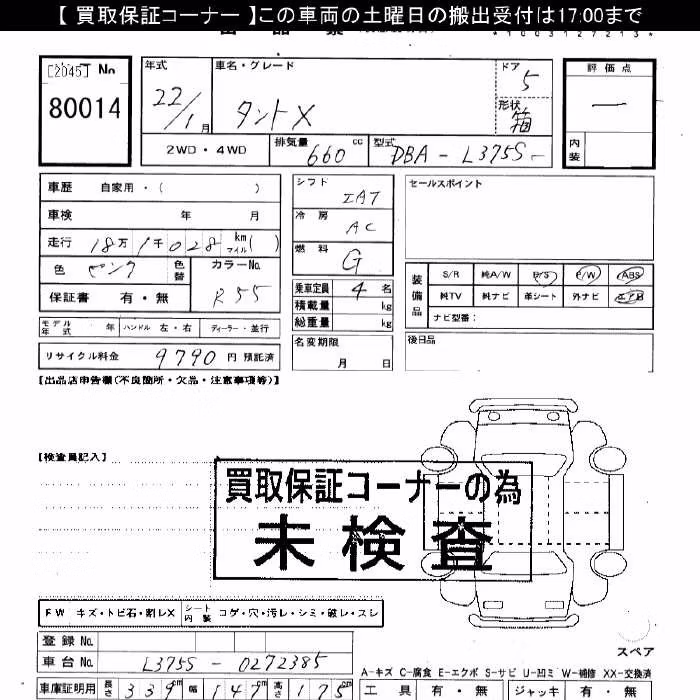 【 買取保証コーナー 】この車両の土曜日の搬出受付は17:00まで
*1003127213*
[2045] No
80014
年式
22/1月
車名・グレード
タントX
ドア
5
形状
箱
評価点
一
内装
2WD・4WD
排気量
660 cc
型式
DBA - L375S -
車歴 自家用・( )
車検 年 月
走行 18万1千028 km マイル ( )
色 ピンク 色替
カラーNo.
R55
保証書 有・無
シフト
IAT
冷房
AC
燃料
G
乗車定員 4名
積載量 kg
総重量 kg
セールスポイント
装備品
S/R 純A/W P/S P/W ABS
純TV 純ナビ 革シート 外ナビ エアB
ナビ型番:
モデル年式 年 ハンドル 左・右 ディーラー・並行
リサイクル料金 9790 円 預託済
名変期限
月 日
後日品
【出品店申告欄(不良箇所・欠品・注意事項等)】
【検査員記入】
買取保証コーナーの為
未検査
FW キズ・トビ石・割レX シート内装 コゲ・穴・汚レ・シミ・破レ・スレ
登録 No.
車台 No. L375S - 0272385
車庫証明用 長さ 339cm 幅 147cm 高さ 175cm
スペア
A-キズ C-腐食 E-エクボ S-サビ U-凹ミ W-補修 XX-交換済
工具 有・無 ジャッキ 有・無